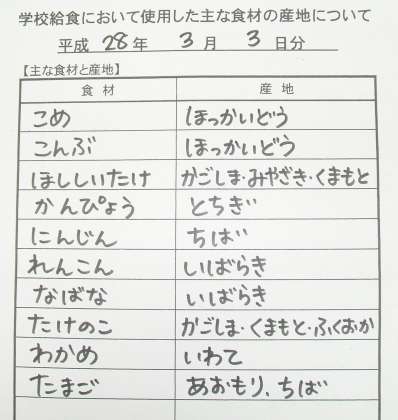 学校給食において使用した主な食材の産地について
平成 28 年 3 月 3 日分
【主な食材と産地】
食材 産地
こめ ほっかいどう
こんぶ ほっかいどう
ほししいたけ かごしま・みやざき・くまもと
かんぴょう とちぎ
にんじん ちば
れんこん いばらき
なばな いばらき
たけのこ かごしま・くまもと・ふくおか
わかめ いわて
たまご あおもり、ちば